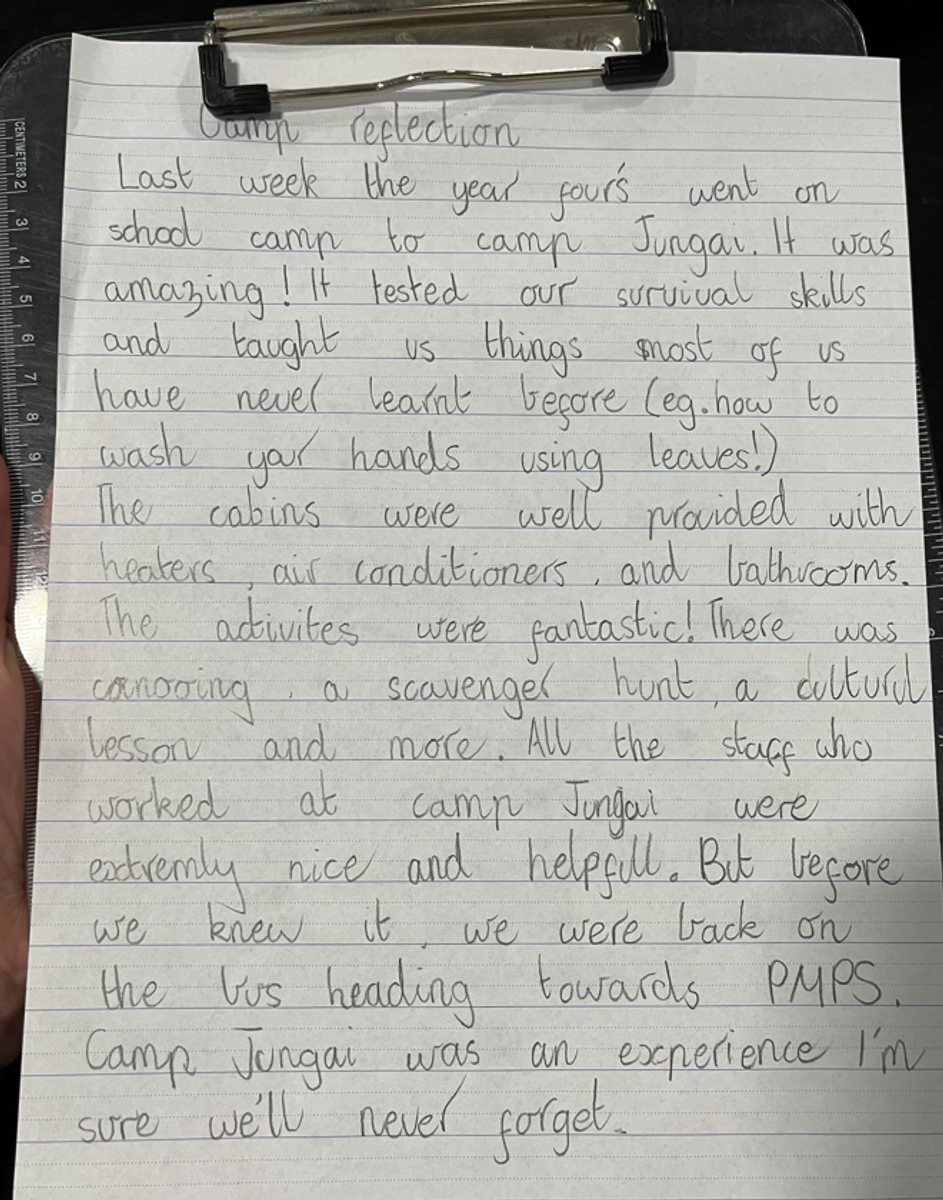 Camp reflection
Last week the year four's went on
school camp to camp Jungai. It was
amazing! It tested our survival skills
and taught us things most of us
have never learnt before (eg. how to
wash your hands using leaves!)
The cabins were well provided with
heaters, air conditioners, and bathrooms.
The activites were fantastic! There was
canooing, a scavenger hunt, a cultural
lesson and more. All the staff who
worked at camp Jungai were
extremly nice and helpfull. But before
we knew it, we were back on
the bus heading towards PMPS.
Camp Jungai was an experience I'm
sure we'll never forget.
CENTIMETERS 2
3
4
5
6
7
8
9
10
11
12